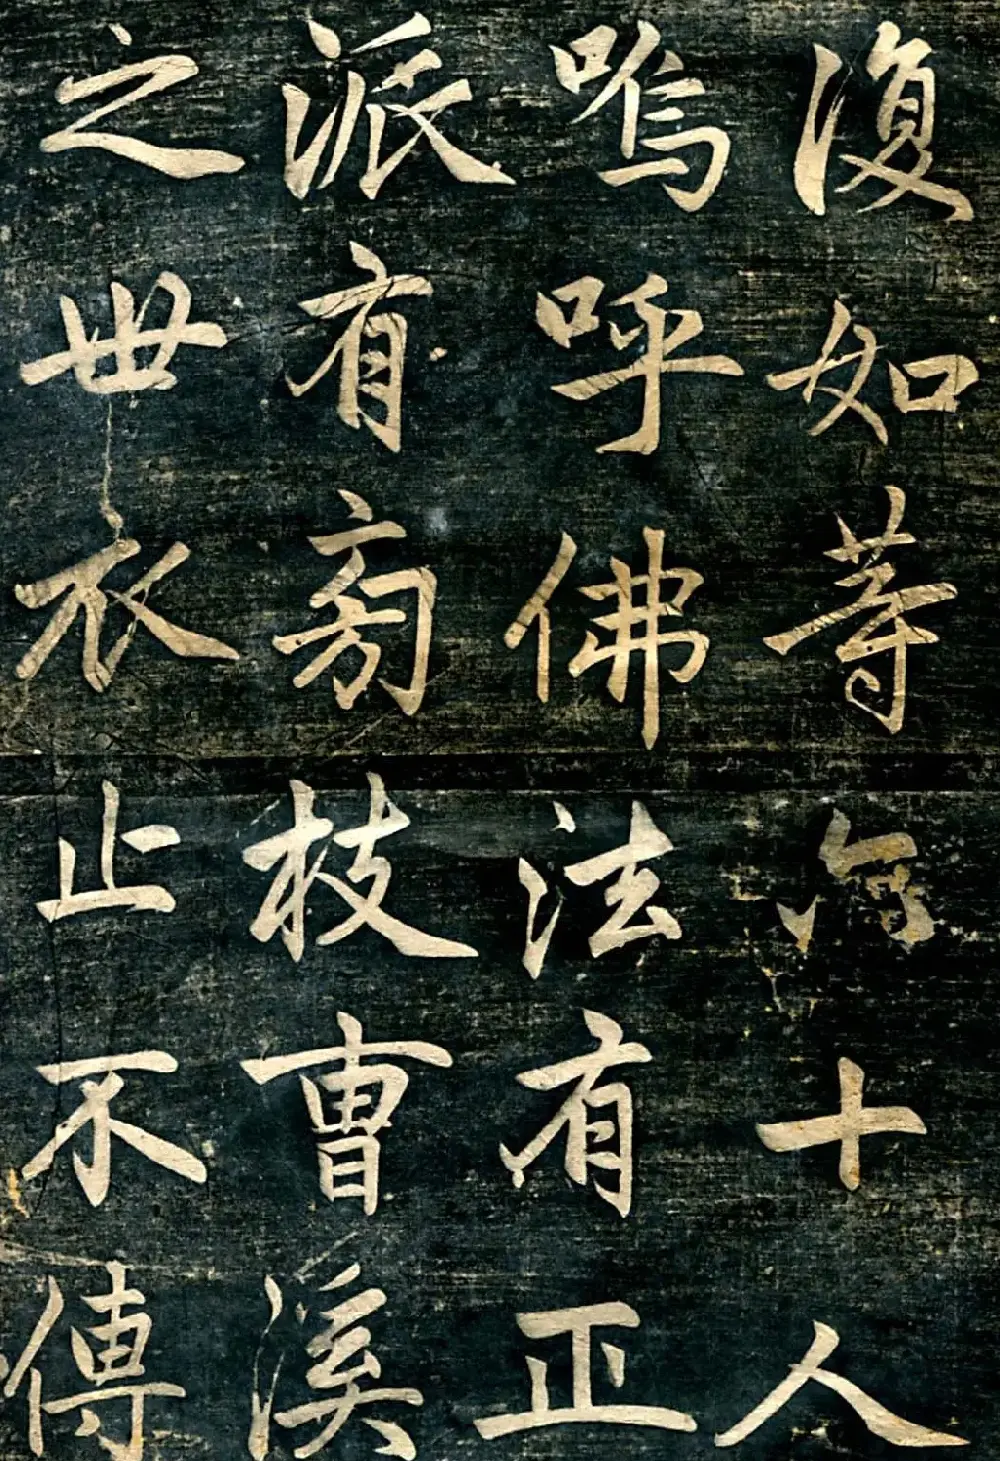 復如等十人
嗚呼佛法有正
派有旁枝曹溪
之世衣止不傳